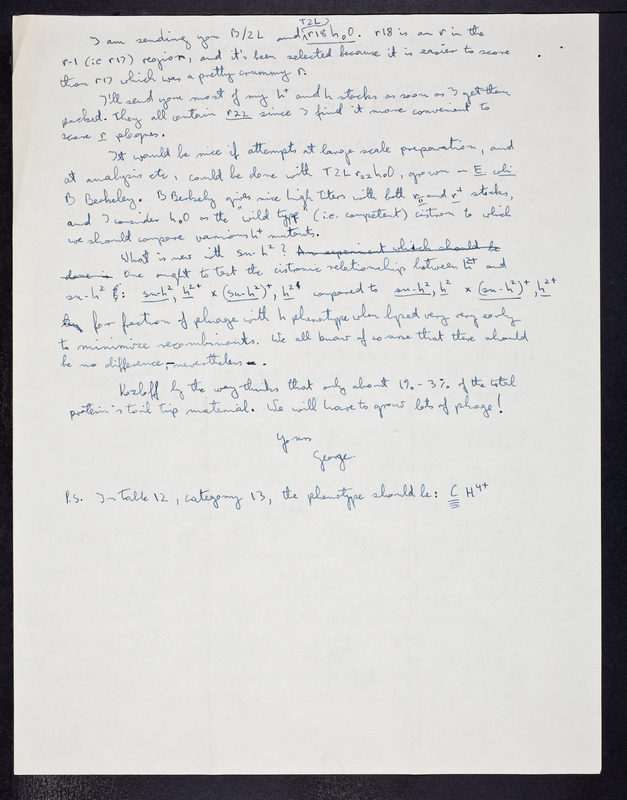 T2L
I am sending you B/2L and r18 h₀0. r18 is an r in the
r-1 (i.e r17) region, and it's been selected because it is easier to score
than r17 which was a pretty crummy r.
I'll send you most of my h⁺ and h stocks as soon as I get them
packed. They all contain r22 since I find it more convenient to
score r plaques.
It would be nice if attempts at large scale preparation, and
at analysis etc, could be done with T2L r22 h₀0, grown – E coli
B Berkeley. B Berkeley gives nice high titers with both r and r⁺ stocks,
and I consider h₀0 as the "wild type" (i.e. competent) cistron to which
we should compare various h⁺ mutants.
What is new with su-h²? An experiment which should be
done is One ought to test the cistronic relationship between h²⁺ and
su-h² : su-h², h²⁺ × (su-h²)⁺, h² compared to su-h², h² × (su-h²)⁺, h²⁺
for faction of phage with h phenotype when lysed very very early
to minimize recombinants. We all know of course that there should
be no difference, – nevertheless – .
Kozloff by the way thinks that only about 1% - 3% of the total
protein is tail tip material. We will have to grow lots of phage!
Yours
George.
P.S. In Table 12, category 13, the phenotype should be: C H⁴⁺